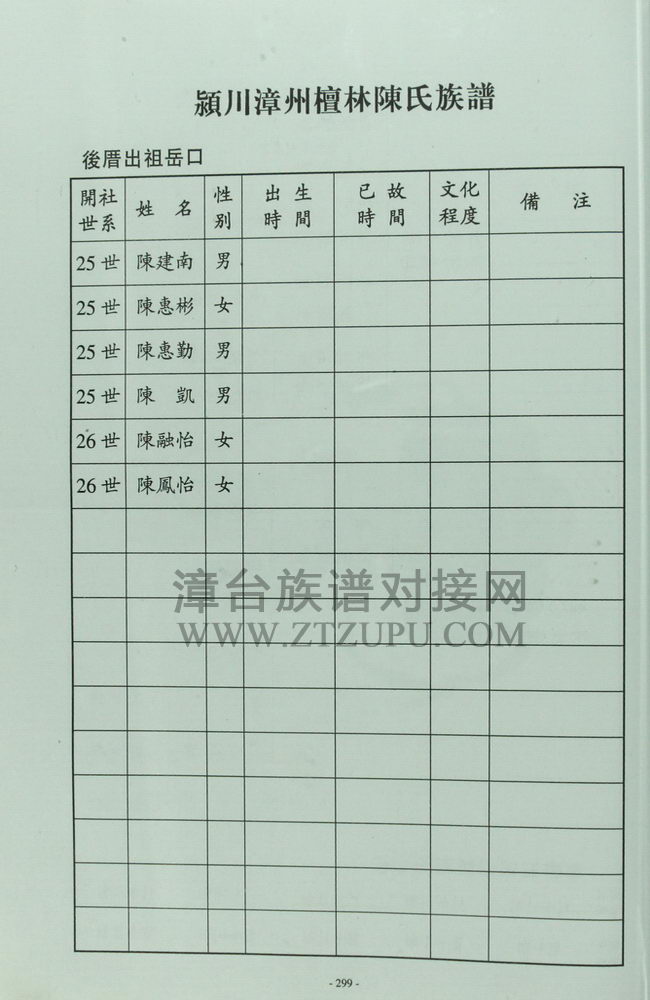 潁川漳州檀林陳氏族譜
後厝出祖岳口
開社世系 姓 名 性别 出生時間 已故時間 文化程度 備 注
25世 陳建南 男
25世 陳惠彬 女
25世 陳惠勤 男
25世 陳 凱 男
26世 陳融怡 女
26世 陳鳳怡 女
漳台族谱对接网
WWW.ZTZUPU.COM
- 299 -